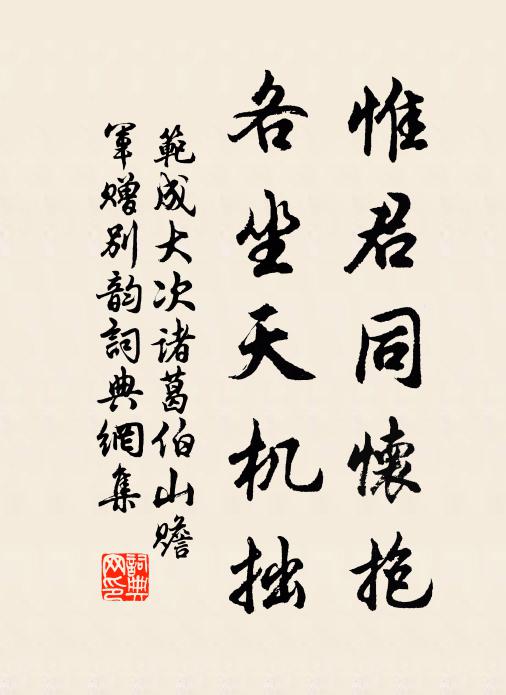 惟君同懷抱
各坐天机拙
範成大次諸葛伯山贍
軍赠别韵詞典網集
詞典
网印